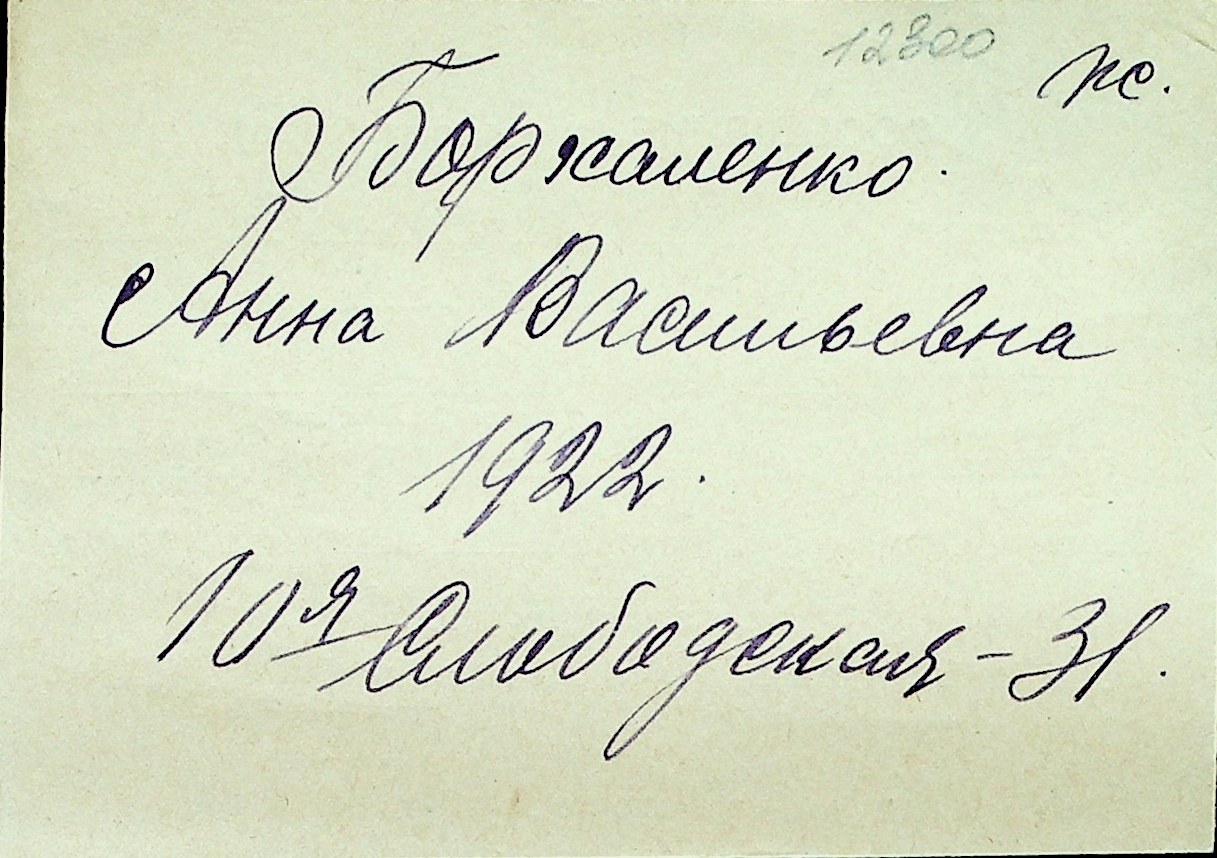 12300
ж.
Боржаленко.
Анна Васильевна
1922.
10я Слободская - 31.